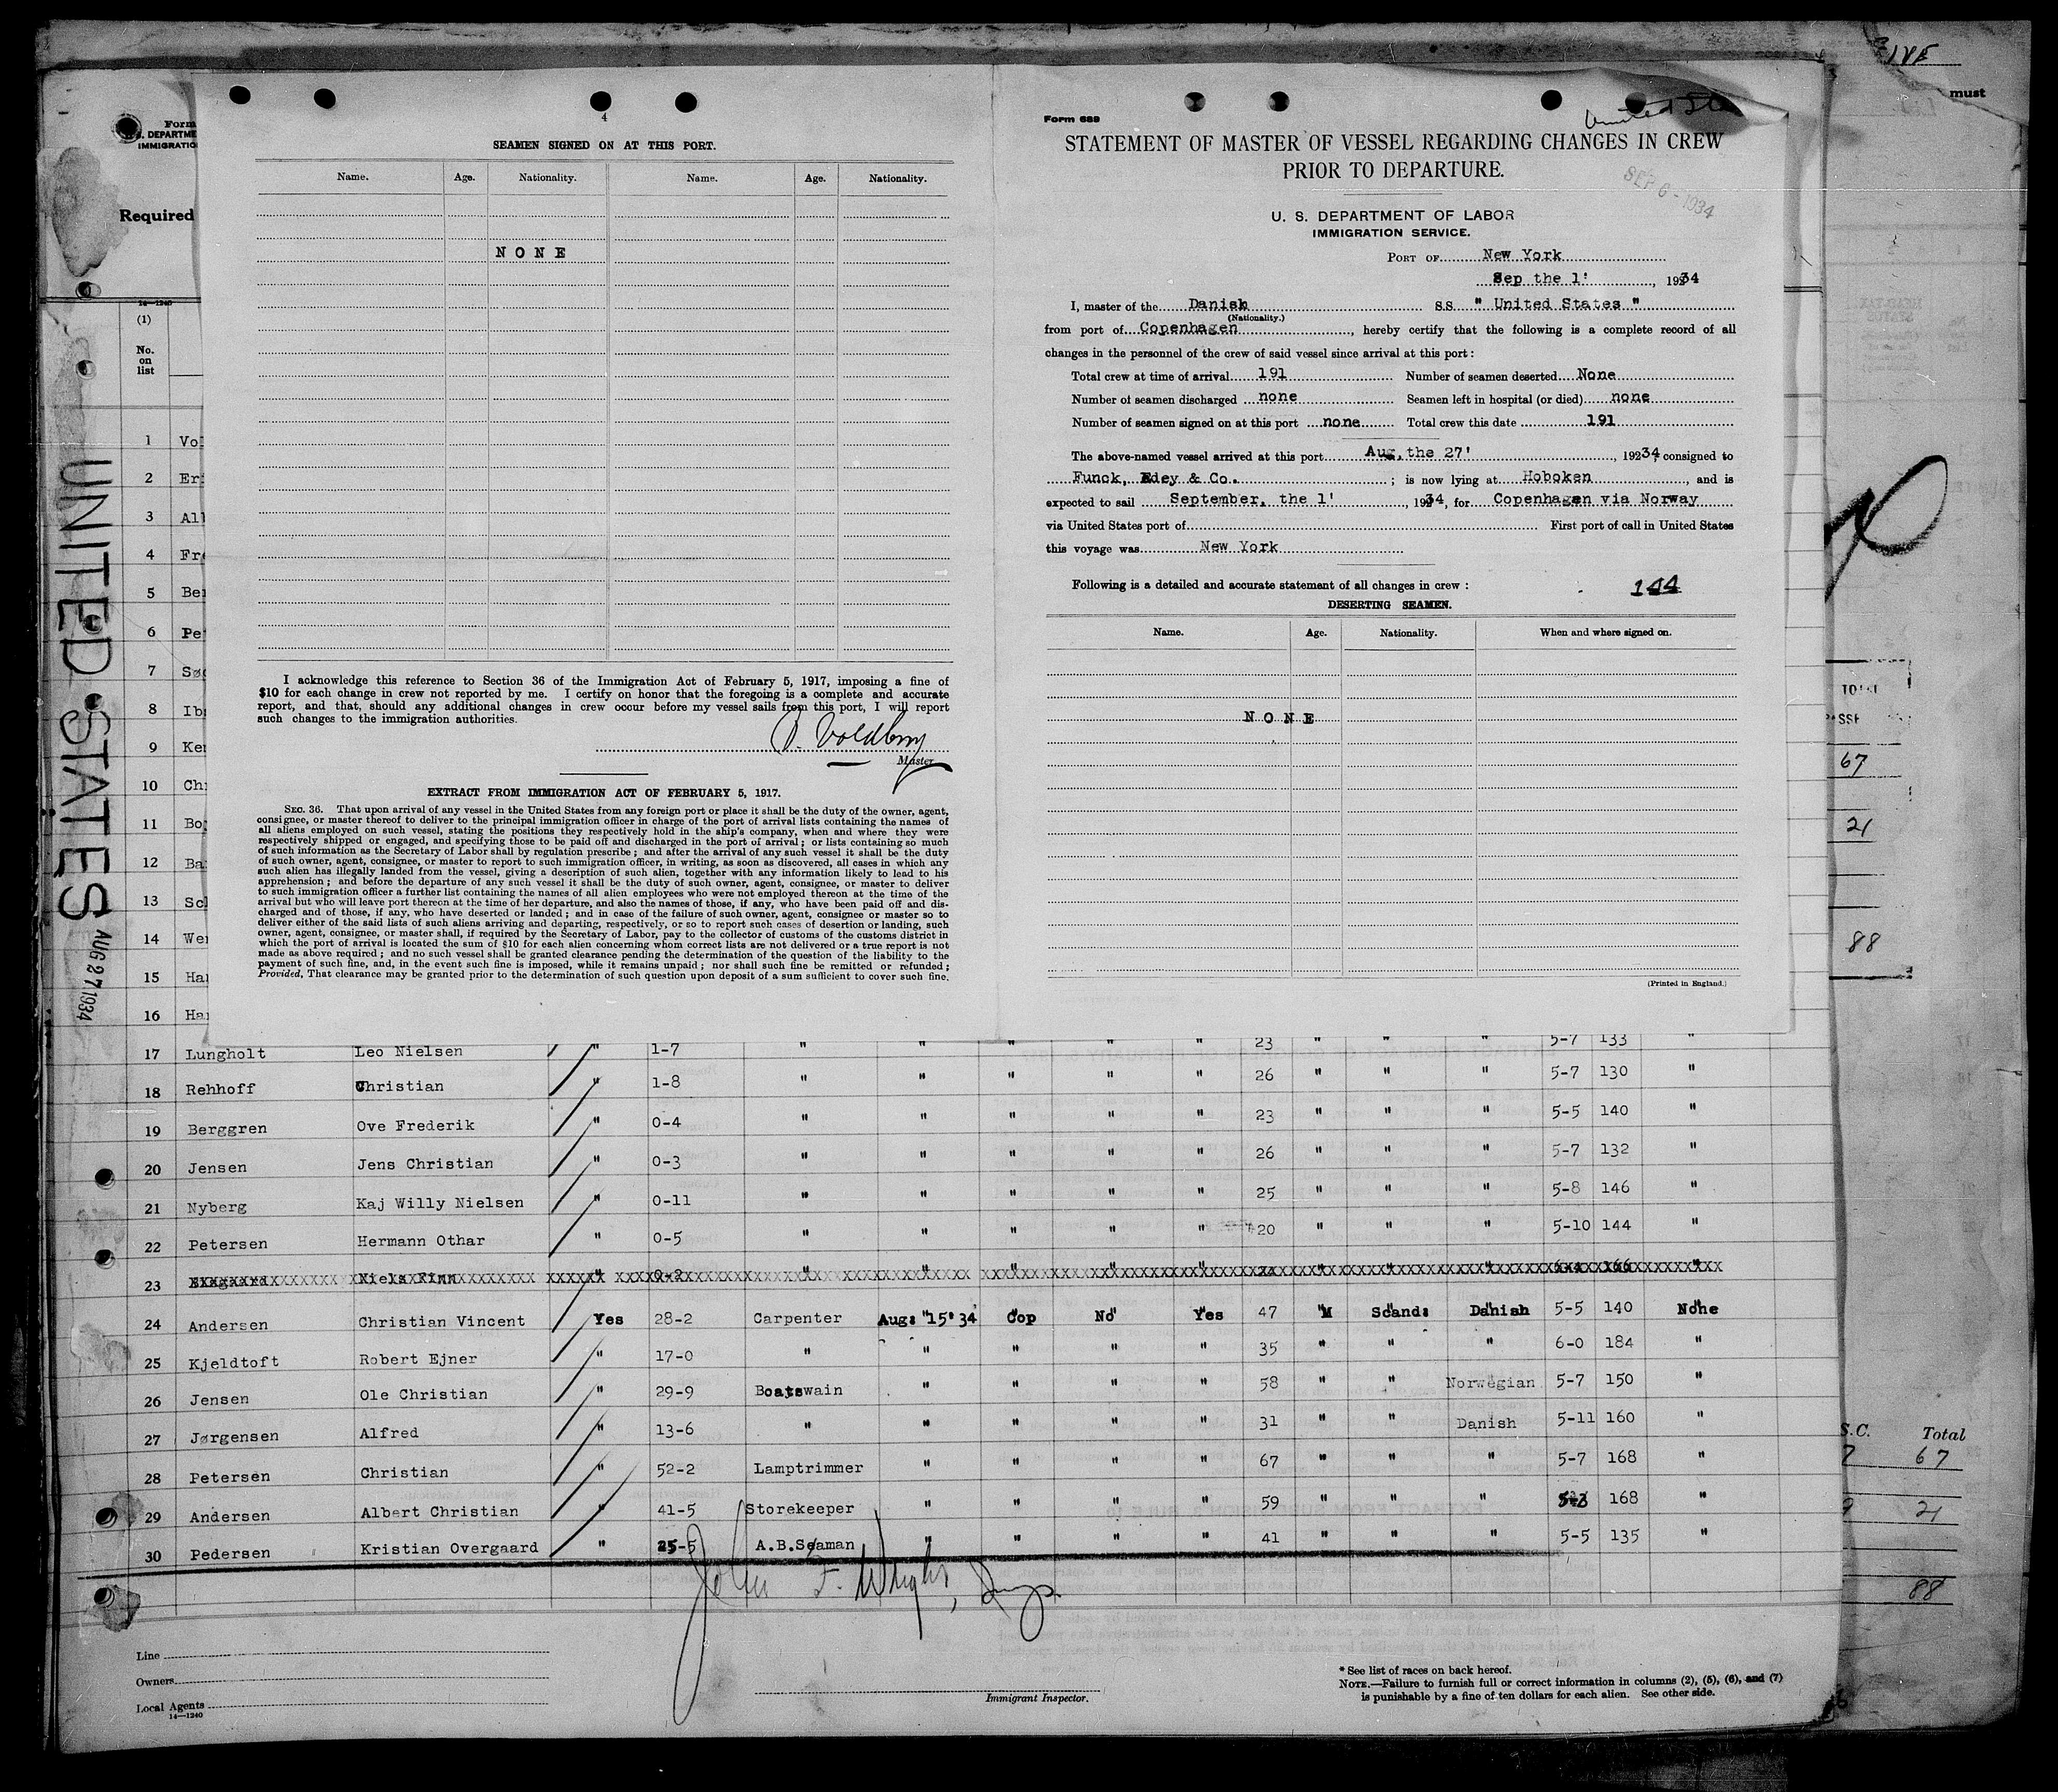 4
SEAMEN SIGNED ON AT THIS PORT.
Name. Age. Nationality. Name. Age. Nationality.
NONE
I acknowledge this reference to Section 36 of the Immigration Act of February 5, 1917, imposing a fine of
$10 for each change in crew not reported by me. I certify on honor that the foregoing is a complete and accurate
report, and that, should any additional changes in crew occur before my vessel sails from this port, I will report
such changes to the immigration authorities.
Master
EXTRACT FROM IMMIGRATION ACT OF FEBRUARY 5, 1917.
SEC. 36. That upon arrival of any vessel in the United States from any foreign port or place it shall be the duty of the owner, agent,
consignee, or master thereof to deliver to the principal immigration officer in charge of the port of arrival lists containing the names of
all aliens employed on such vessel, stating the positions they respectively hold in the ship's company, when and where they were
respectively shipped or engaged, and specifying those to be paid off and discharged in the port of arrival; or lists containing so much
of such information as the Secretary of Labor shall by regulation prescribe; and after the arrival of any such vessel it shall be the duty
of such owner, agent, consignee, or master to report to such immigration officer, in writing, as soon as discovered, all cases in which any
such alien has illegally landed from the vessel, giving a description of such alien, together with any information likely to lead to his
apprehension; and before the departure of any such vessel it shall be the duty of such owner, agent, consignee, or master to deliver
to such immigration officer a further list containing the names of all alien employees who were not employed thereon at the time of the
arrival but who will leave port thereon at the time of her departure, and also the names of those, if any, who have been paid off and dis-
charged and of those, if any, who have deserted or landed; and in case of the failure of such owner, agent, consignee or master so to
deliver either of the said lists of such aliens arriving and departing, respectively, or so to report such cases of desertion or landing, such
owner, agent, consignee, or master shall, if required by the Secretary of Labor, pay to the collector of customs of the customs district in
which the port of arrival is located the sum of $10 for each alien concerning whom correct lists are not delivered or a true report is not
made as above required; and no such vessel shall be granted clearance pending the determination of the question of the liability to the
payment of such fine, and, in the event such fine is imposed, while it remains unpaid; nor shall such fine be remitted or refunded;
Provided, That clearance may be granted prior to the determination of such question upon deposit of a sum sufficient to cover such fine.
Form 689
United Sta
STATEMENT OF MASTER OF VESSEL REGARDING CHANGES IN CREW
PRIOR TO DEPARTURE.
SEP 6 - 1934
U. S. DEPARTMENT OF LABOR
IMMIGRATION SERVICE.
PORT OF New York
Sep the 1' , 1934
I, master of the Danish S.S. " United States "
(Nationality.)
from port of Copenhagen , hereby certify that the following is a complete record of all
changes in the personnel of the crew of said vessel since arrival at this port:
Total crew at time of arrival 191 Number of seamen deserted None
Number of seamen discharged none Seamen left in hospital (or died) none
Number of seamen signed on at this port none Total crew this date 191
The above-named vessel arrived at this port Aug, the 27' , 19234, consigned to
Funck, Edey & Co. ; is now lying at Hoboken , and is
expected to sail September, the 1' , 1934, for Copenhagen via Norway
via United States port of First port of call in United States
this voyage was New York
Following is a detailed and accurate statement of all changes in crew: 144
DESERTING SEAMEN.
Name. Age. Nationality. When and where signed on.
NONE
(Printed in England.)
Form
S. DEPARTME
IMMIGRATIO
Required
14—1240
(1)
No.
on
list
UNITED STATES
AUG 27 1934
1 Vol
2 Eri
3 All
4 Fre
5 Ber
6 Pe
7 Sø
8 Ib
9 Ker
10 Chr
11 Bo
12 Ba
13 Sc
14 Wer
15 Ha
16 Ha
17 Lungholt Leo Nielsen " 1-7 " " " " " 23 " " " 5-7 133 "
18 Rehhoff Christian " 1-8 " " " " " 26 " " " 5-7 130 "
19 Berggren Ove Frederik " 0-4 " " " " " 23 " " " 5-5 140 "
20 Jensen Jens Christian " 0-3 " " " " " 26 " " " 5-7 132 "
21 Nyberg Kaj Willy Nielsen " 0-11 " " " " " 25 " " " 5-8 146 "
22 Petersen Hermann Othar " 0-5 " " " " " 20 " " " 5-10 144 "
23 Niels Finn
24 Andersen Christian Vincent Yes 28-2 Carpenter Aug: 15' 34 Cop No Yes 47 M Scand: Danish 5-5 140 None
25 Kjeldtoft Robert Ejner " 17-0 " " " " " 35 " " " 6-0 184 "
26 Jensen Ole Christian " 29-9 Boatswain " " " " 58 " " Norwegian 5-7 150 "
27 Jørgensen Alfred " 13-6 " " " " " 31 " " Danish 5-11 160 "
28 Petersen Christian " 52-2 Lamptrimmer " " " " 67 " " " 5-7 168 "
29 Andersen Albert Christian " 41-5 Storekeeper " " " " 59 " " " 168 "
30 Pedersen Kristian Overgaard " 25-5 A.B.Seaman " " " " 41 " " " 5-5 135 "
John F. Wright,
Line
Owners
Local Agents
14—1240
Immigrant Inspector.
* See list of races on back hereof.
NOTE.—Failure to furnish full or correct information in columns (2), (5), (6), and (7)
is punishable by a fine of ten dollars for each alien. See other side.
must
67
21
88
S.C. Total
67
21
88